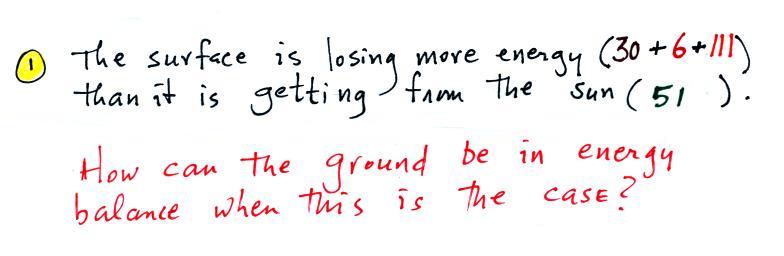 1 The surface is losing more energy (30 + 6 + 111)
than it is getting from the sun ( 51 ).
How can the ground be in energy
balance when this is the case?